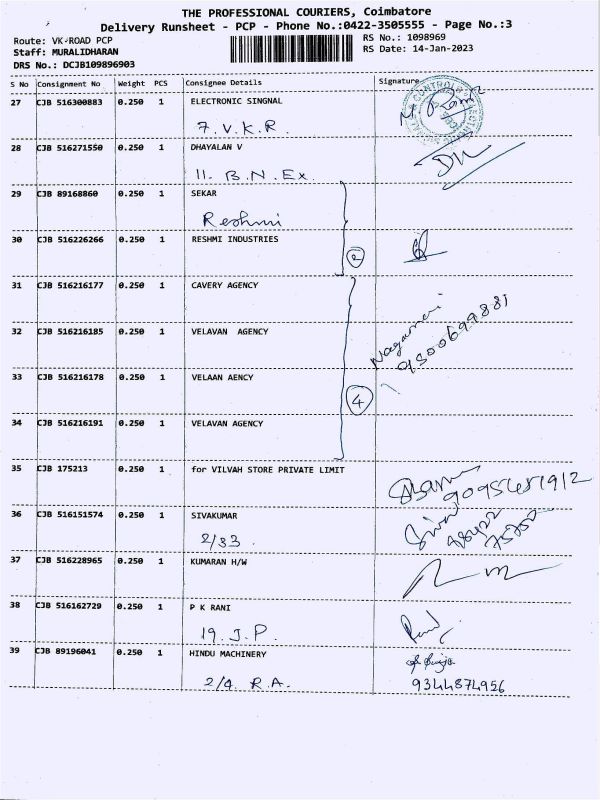 THE PROFESSIONAL COURIERS, Coimbatore
Delivery Runsheet - PCP - Phone No.:0422-3505555 - Page No.:3
Route: VK-ROAD PCP
RS No.: 1098969
Staff: MURALIDHARAN
RS Date: 14-Jan-2023
DRS No.: DCJB109896903
S No Consignment No Weight PCS Consignee Details Signature
27 CJB 516300883 0.250 1 ELECTRONIC SINGNAL
7. V. K. R.
28 CJB 516271550 0.250 1 DHAYALAN V
11. B. N. Ex.
29 CJB 89168860 0.250 1 SEKAR
Reshmi
30 CJB 516226266 0.250 1 RESHMI INDUSTRIES
2
31 CJB 516216177 0.250 1 CAVERY AGENCY
32 CJB 516216185 0.250 1 VELAVAN AGENCY
9500699881
33 CJB 516216178 0.250 1 VELAAN AENCY
4
34 CJB 516216191 0.250 1 VELAVAN AGENCY
35 CJB 175213 0.250 1 for VILVAH STORE PRIVATE LIMIT
36 CJB 516151574 0.250 1 SIVAKUMAR
2/33
37 CJB 516228965 0.250 1 KUMARAN H/W
38 CJB 516162729 0.250 1 P K RANI
19. J. P.
39 CJB 89196041 0.250 1 HINDU MACHINERY
2/4. R. A.
9344874956